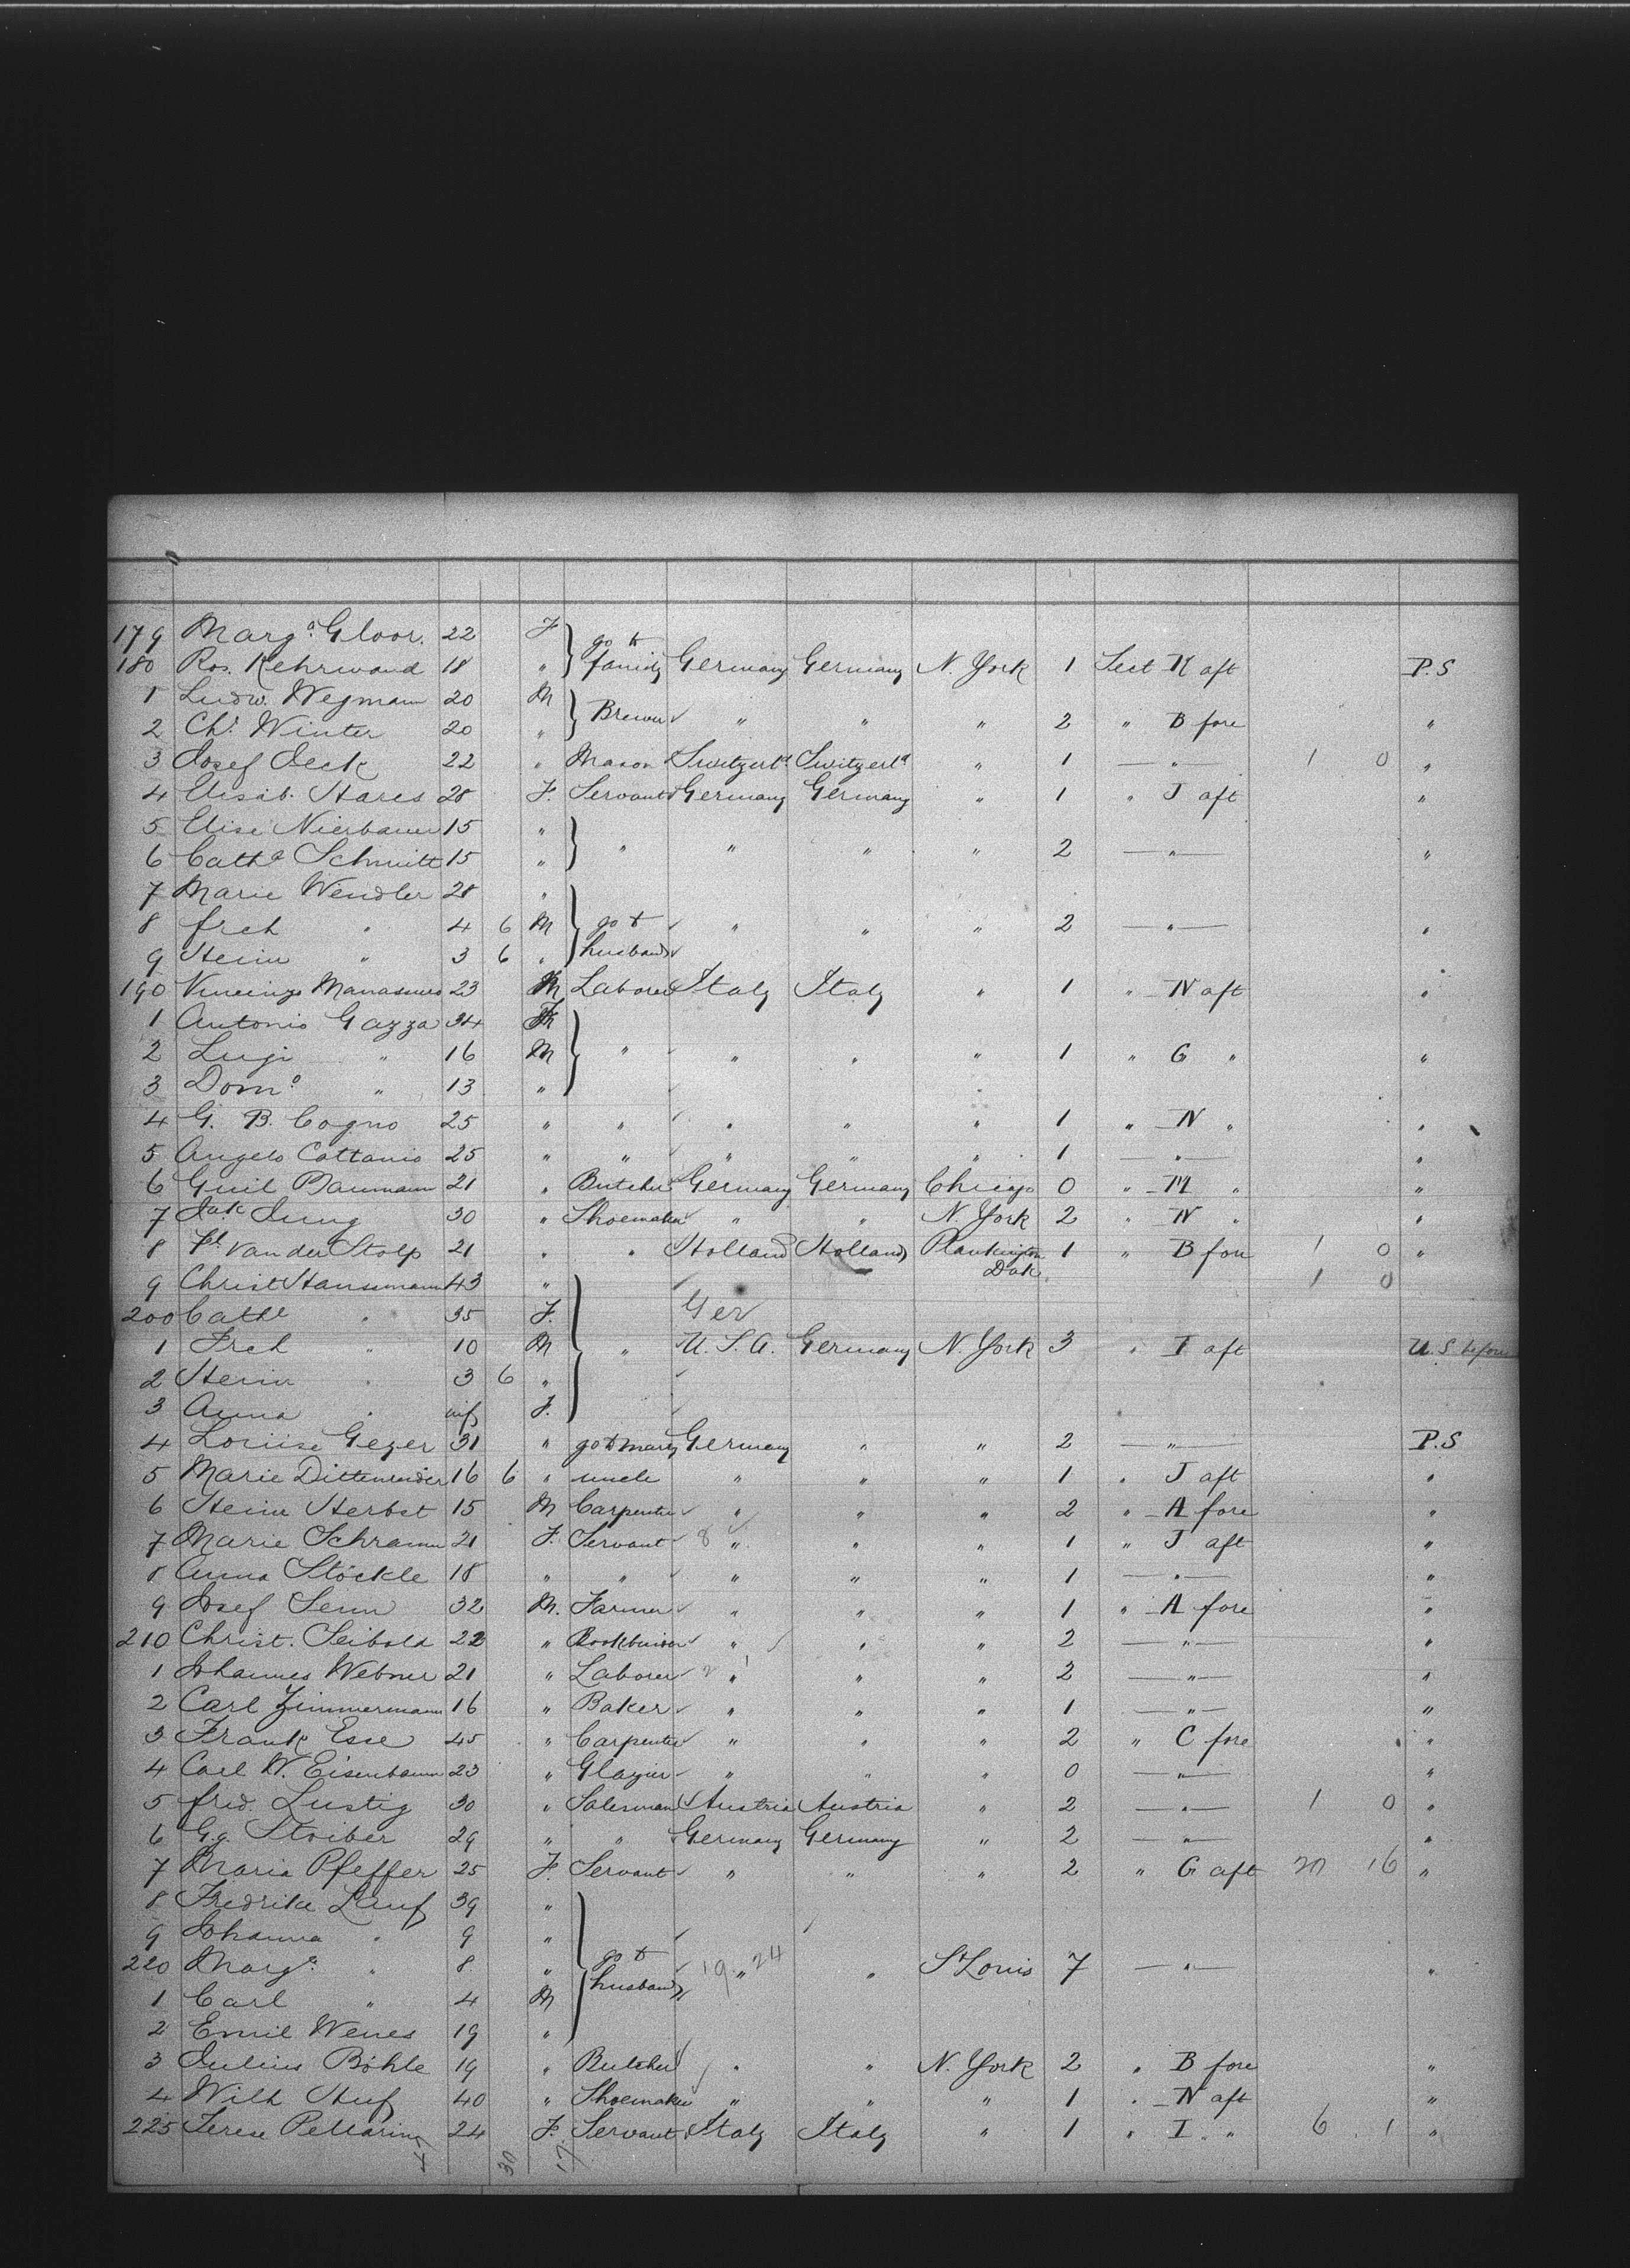 179 Marg.a Gloor. 22 F
go to
180 Ros. Kehrwand 18 " family Germany Germany N. York 1 Sect K aft P.S
1 Ludw. Wegmann 20 M
Brewer
2 Chr. Winter 20 " " " " 2 " B fore "
3 Josef Jeck 22 " Mason Switzerld Switzerld " 1 — " — 1 0 "
4 Elisab. Hares 28 F. Servant Germany Germany " 1 " J aft "
5 Elise Nierbauer 15 "
6 Catha Schmitt 15 " " " " " 2 — " — "
7 Marie Wendler 28 "
8 fred " 4 6 M go to " " " 2 — " — "
9 Heinr " 3 6 " husband
190 Vincenzo 23 M Laborer Italy Italy " 1 " N aft "
1 Antonio Gazza 34 F
2 Luigi " 16 M " " " " 1 " G " "
3 Domo " 13 "
4 G. B. Cogno 25 " " " " " 1 " N " "
5 Angelo Cattanio 25 " " " " " 1 — " — "
6 Guil Baumann 21 " Butcher Germany Germany Chicago 0 " M " "
7 Jak Jung 30 " Shoemaker " " N. York 2 " N " "
8 van der Stolp 21 " " Holland Holland Plankington 1 " B fore 1 0 "
Dak.
9 Christ Hanssmann 43 " 1 0
200 Cathe " 35 F. Ger
1 Fred " 10 M " U. S. A. Germany N. York 3 " I aft U. S. before
2 Heinr " 3 6 "
3 Anna " inf F.
4 Louise Geyer 31 " go to marry Germany " " 2 — " — P.S
5 Marie 16 6 " uncle " " " 1 " J aft "
6 Heinr Herbst 15 M Carpenter " " " 2 " A fore "
7 Marie Schramm 21 F. Servant 8 " " " 1 " J aft "
8 Anna Stöckle 18 " " " " " 1 — " — "
9 Josef Senn 32 M. Farmer " " " 1 " A fore "
210 Christ. Seibold 22 " Bookbinder " " " 2 — " — "
1 Johannes Webner 21 " Laborer " " " 2 — " — "
2 Carl Zimmermann 16 " Baker " " " 1 — " — "
3 Frank Esse 45 " Carpenter " " " 2 " C fore "
4 Carl W. Eisenbaum 23 " Glazier " " " 0 — " — "
5 fred. Lustig 30 " Salesman Austria Austria " 2 — " — 1 0 "
6 Gg. Stoiber 29 " " Germany Germany " 2 — " — "
7 Maria Pfeffer 25 F. Servant " " " 2 " G aft 20 16 "
8 Fredrike Lauf 39 "
9 Johanna " 9 "
220 Marga " 8 " go to 19 " 24 " St Louis 7 — " — "
1 Carl " 4 M husband
2 Emil Wenes 19 "
3 Julius Böhle 19 " Butcher " " N. York 2 " B fore "
4 Wilh Huf 40 " Shoemaker " " " 1 " N aft "
225 Terese Pellarin 24 F. Servant Italy Italy " 1 " I " 6 1 "
30 17